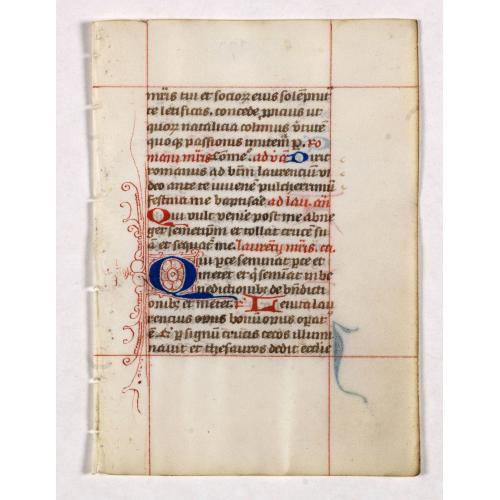 mr̄is tui et socioꝝ eius solēpnit
te letificas. concede ꝓpicius ut
quoꝝ natalicia colimus v̄tutē
quoqꝫ passionis imitem̄ ꝑ. Ro
mani mr̄is Cōme. ad v̄ā Dixit
romanus ad bm̄ laurencium vi
deo ante te iuuenē pulcherrimū
festina me baptisare ad lau. añ
Qui vult venire post me abne
get semetipm̄ et tollat crucē su
ā et sequat̄ me. laurecij mr̄is. ca.
Qui ꝑce seminat ꝑce et
metet et q̄ seminat in be
nedictionibꝫ de bn̄dicti
onibꝫ et metet. ℟ Leuita lau
rencius opus bonū opat̄
ē. Et ꝑ signum crucis cecos illumi
nauit et thesauros dedit ecclie